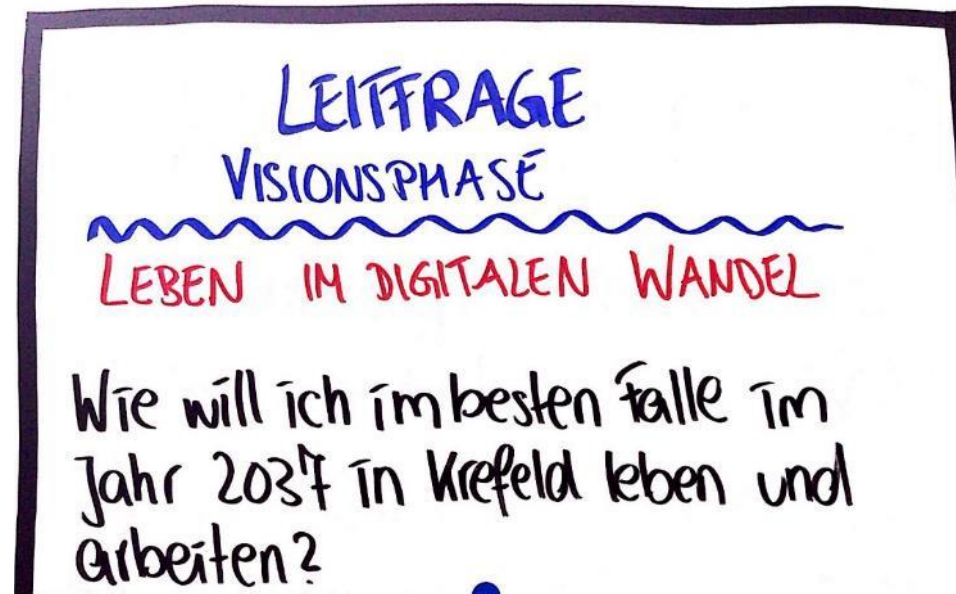 LEITFRAGE
VISIONSPHASE
LEBEN IM DIGITALEN WANDEL
Wie will ich im besten Falle im
Jahr 2037 in Krefeld leben und
arbeiten?